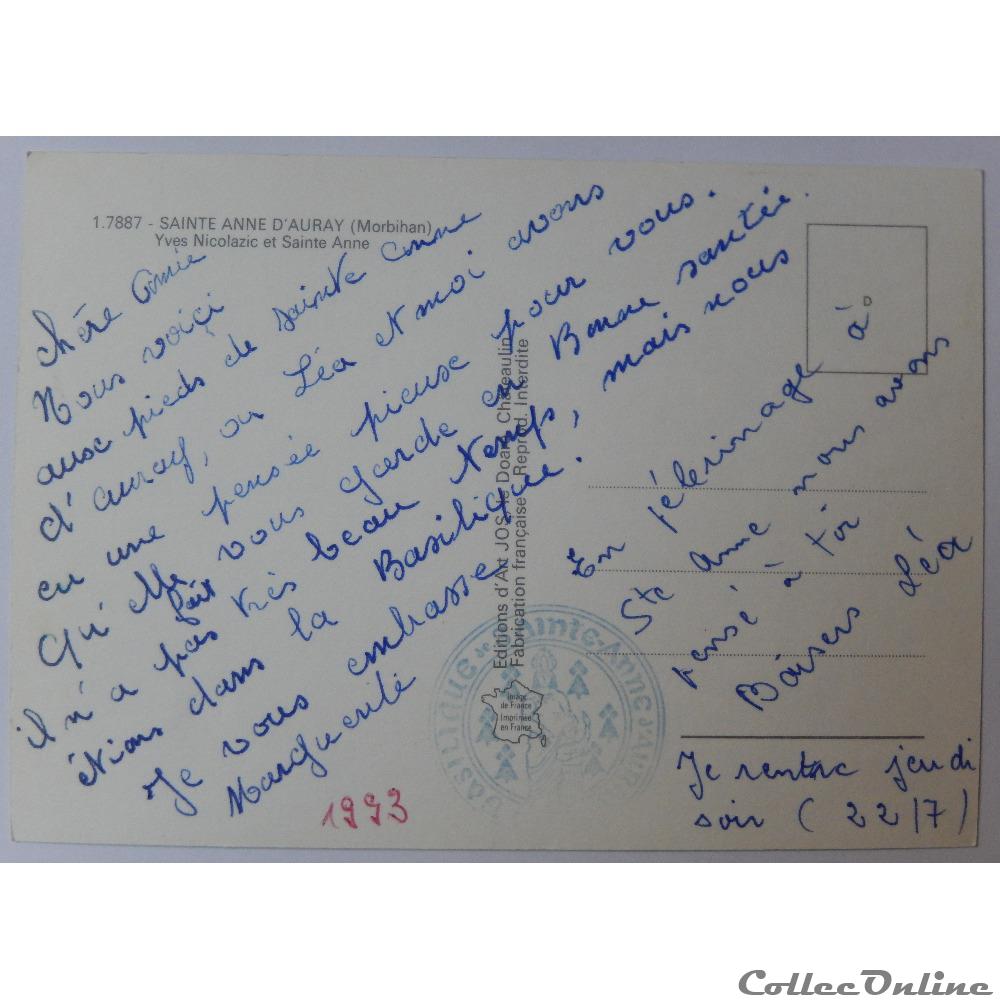 1.7887 - SAINTE ANNE D'AURAY (Morbihan)
Yves Nicolazic et Sainte Anne
Chère Amie
Nous voici
aux pieds de Sainte Anne
d'auray, ou Léa et moi avons
eu une pensée pieuse pour vous.
Qu'elle vous garde en Bonne santée.
il n'a pas fait très beau temps, mais nous
étions dans la Basilique.
Je vous embrasse
Marguerite
1993
Editions d'Art JOS le Doaré Chateaulin
Fabrication française - Reprod. Interdite
BASILIQUE de SAINTE-ANNE d'AURAY
Image
de France
Imprimée
en France
D
En pélerinage à
Ste Anne nous avons
pensé à toi
Baisers Léa
Je rentre jeudi
soir (22/7)
CollecOnline